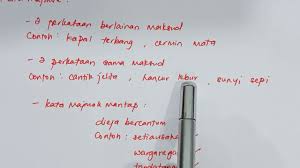 - 2 perkataan berlainan maksud
Contoh : kapal terbang , cermin mata
- 2 perkataan sama maksud
Contoh : cantik jelita , hancur lebur , sunyi sepi
- kata majmuk mantap :
dieja bercantum
Contoh : setiausaha
warganegara